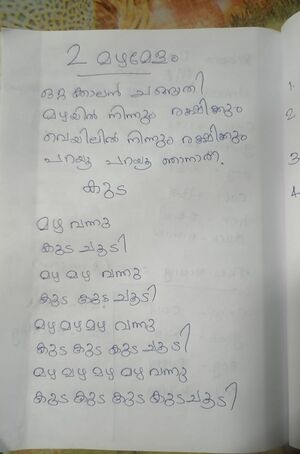 2 മഴമേളം
ഒറ്റക്കാലൻ ചങ്ങാതി
മഴയിൽ നിന്നും രക്ഷിക്കും
വെയിലിൽ നിന്നും രക്ഷിക്കും
പറയൂ പറയൂ ഞാനാര്.
കുട
മഴ വന്നു
കുട ചൂടി
മഴ മഴ വന്നു
കുട കുട ചൂടി
മഴ മഴ മഴ വന്നു
കുട കുട കുട ചൂടി
മഴ മഴ മഴ മഴ വന്നു
കുട കുട കുട കുട ചൂടി
1
2
3
4